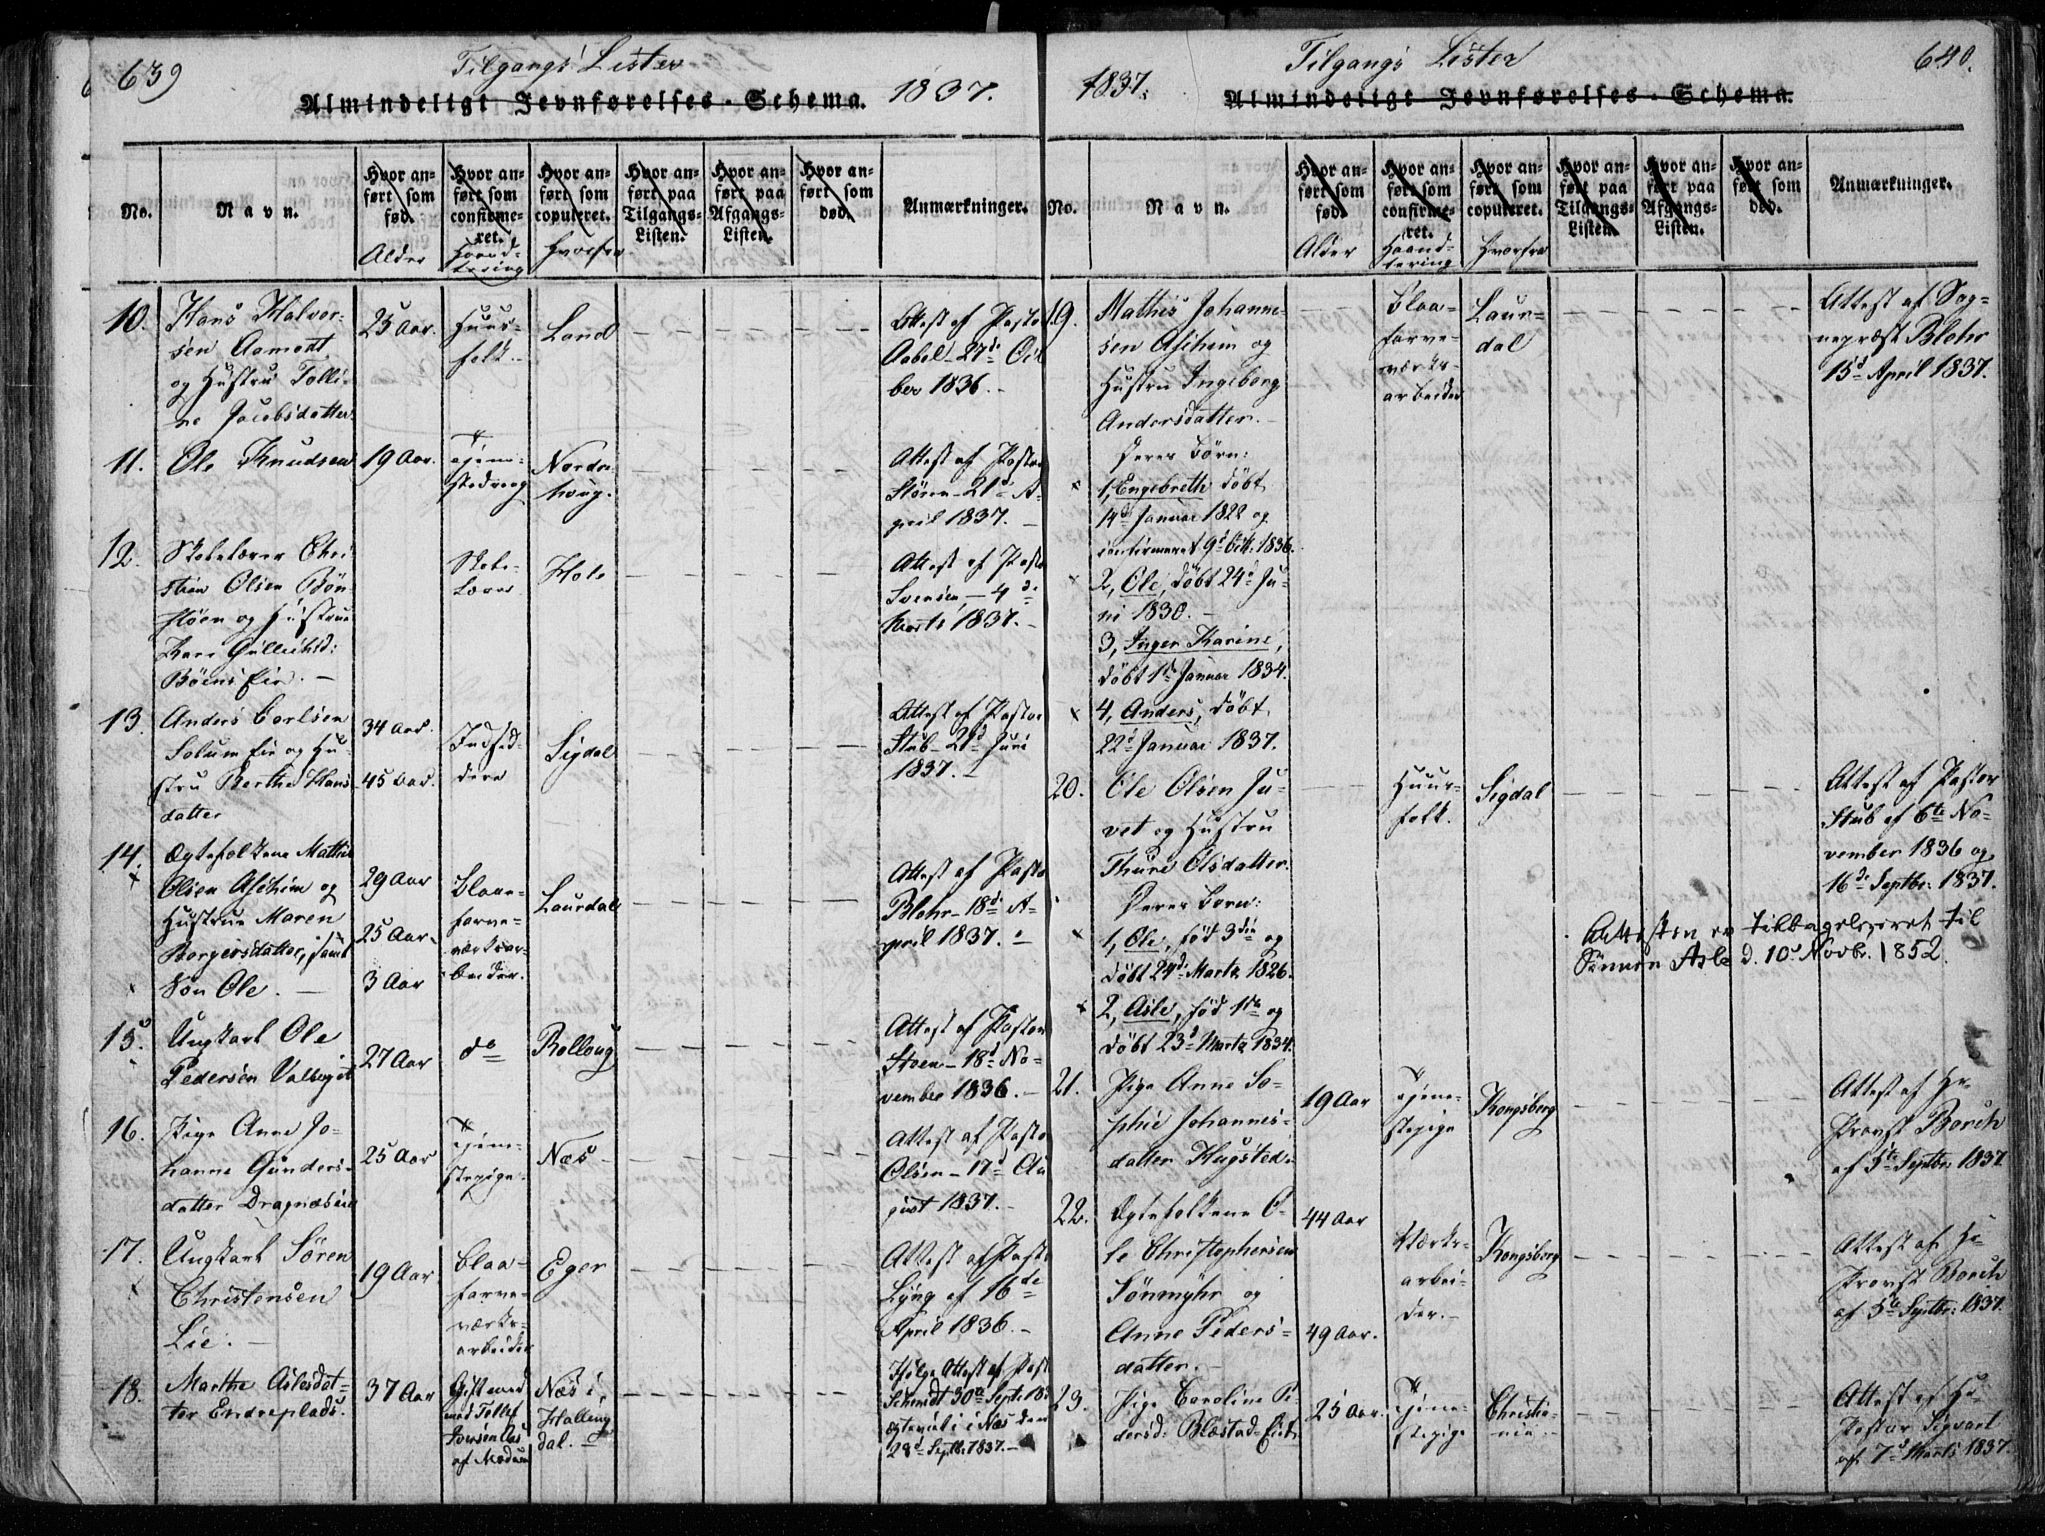 639
Tilgangs Lister
Almindeligt Jevnførelses-Schema.
1837.
No.
Navn.
Hvor an-
ført som
fød.
Alder
Hvor an-
ført som
confirme-
ret.
Haand-
tering
Hvor an-
ført som
copuleret.
Hvorfra
Hvor an-
ført paa
Tilgangs-
Listen.
Hvor an-
ført paa
Afgangs-
Listen.
Hvor an-
ført som
død.
Anmærkninger.
10.
Hans Halvor-
sen Aamodt
og Hustru Tolli-
ne Jacobsdatter
25 Aar.
Huus-
folk.
Land
Attest af Pastor
Aabel 27de Octo
ber 1836.
11.
Ole Knudsen
19 Aar.
Tjene-
stedreng
Norder-
houg.
Attest af Pastor
21de A-
pril 1837.
12.
Skolelærer Chri-
stian Olsen Bøn-
og Hustrue
Kari Gulliksd:
Skole-
Lærer
Hole
Attest af Pastor
4de
Marts 1837.
13.
Anders Carlsen
Solum Eie og Hu-
stru Berthe Hans-
datter
34 Aar.
45 Aar.
Indsid-
dere
Sigdal
Attest af Pastor
Stub 21de Juni
1837.
14.
Ægtefolkene Mathis
Olsen Aschim og
Hustrue Maren
Borgersdatter, samt
Søn Ole.
29 Aar
25 Aar.
3 Aar
Blaae-
farve-
værksar-
beider.
Laurdal
Attest af Pastor
Blohr 18de A-
pril 1837.
15.
Ungkarl Ole
Pedersen
27 Aar
do
Rolloug
Attest af Pastor
Steen 18de No-
vember 1836.
16.
Pige Anne Jo-
hanne Gunders-
datter Dragnæseie
25 Aar
Tjene-
stepige.
Næs
Attest af Pastor
Olsen 17de Au
gust 1837.
17.
Ungkarl Søren
Christensen
Lie.
19 Aar
Blaa-
farve-
værks-
arbeider
Eger
Attest af Pastor
Lyng af 16de
April 1836.
18.
Marthe Aslesdat-
ter Endreplads.
37 Aar
Gift med
af Modum
Næs i
Halling-
dal.
Ifølge Attest af Past
Schmidt 30te Septr 183
i Næs den
28de Septbr 1837.
1837.
Tilgangs Lister
Almindeligt Jevnførelses-Schema.
640.
No.
Navn.
Hvor an-
ført som
fød.
Alder
Hvor an-
ført som
confirme-
ret.
Haand-
tering
Hvor an-
ført som
copuleret.
Hvorfra
Hvor an-
ført paa
Tilgangs-
Listen.
Hvor an-
ført paa
Afgangs-
Listen.
Hvor an-
ført som
død.
Anmærkninger.
19.
Mathis Johanne-
sen Aschim og
Hustru Ingeborg
Andersdatter.
Deres Børn:
1, Engebreth døbt
14de Januar 1822 og
confirmeret 9de Oct: 1836.
2, Ole, døbt 24de Ju-
ni 1830.
3, Inger Karine,
døbt 1de Januar 1834.
4, Anders, døbt
22de Januar 1837.
Blaa-
farve-
værks-
arbeider
Laur-
dal
Attest af Sog-
nepræst Blohr
15de April 1837.
20.
Ole Olsen Ju-
vet og Hustru
Thure Olsdatter.
Deres Børn:
1, Ole, fød 3die og
døbt 24de Marts 1826.
2, Asle, fød 1te og
døbt 23de Marts 1834.
Huus-
folk.
Sigdal
Attest af Pastor
Stub af 6te No-
vember 1836 og
16de Septbr. 1837.
Attesten er tilbageleveret til
Sønnen Asle d. 10de Novbr. 1852.
21.
Pige Anne So-
phie Johannes-
datter Hugsted.
19 Aar
Tjene-
stepige
Kongsberg
Attest af Hr
Provst Borch
af 5te Septbr. 1837.
22.
Ægtefolkene O-
le Christophersen
Sønmyhr og
Anne Peders-
datter.
44 Aar
49 Aar.
Værks-
arbei-
der.
Kongsberg
Attest af Hr
Provst Borch
af 5te Septbr: 1837.
23.
Pige Caroline Pe-
dersd: Blæstad-Eiet
25 Aar.
Tjene-
stepige
Christia-
nia.
Attest af Hr
Pastor
af 7de Marts 1837.